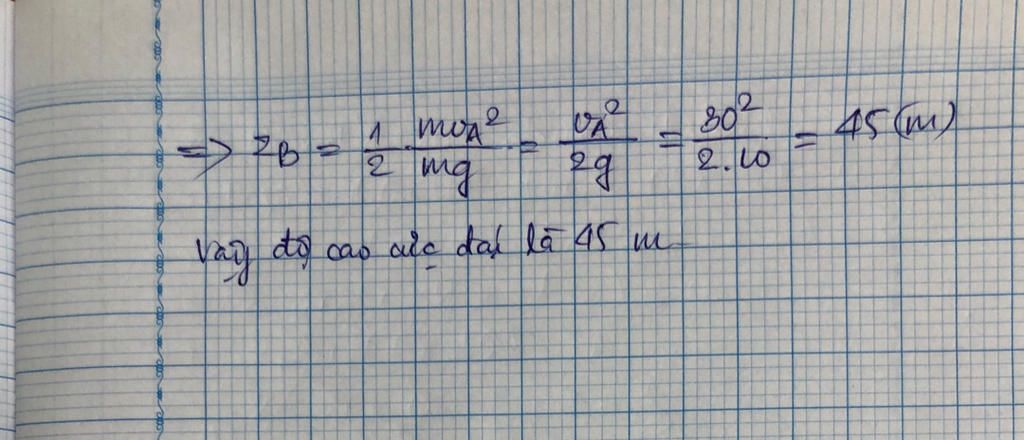 => z_B = 1/2 · mv_A²/mg = v_A²/2g = 30²/2.10 = 45 (m)
Vậy độ cao cực đại là 45 m